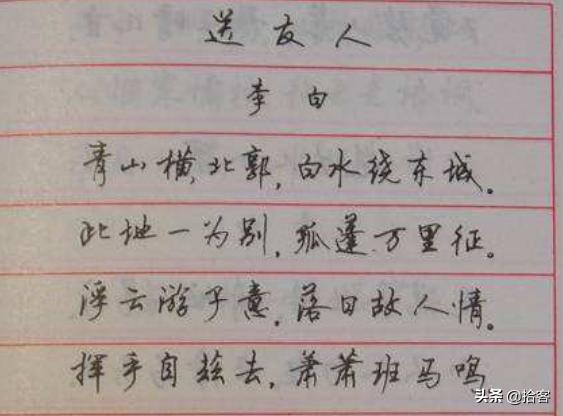 送友人
李白
青山横北郭，白水绕东城。
此地一为别，孤蓬万里征。
浮云游子意，落日故人情。
挥手自兹去，萧萧班马鸣
头条 @拾客